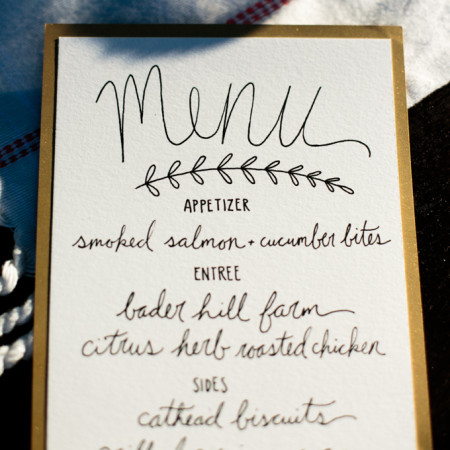 Menu
APPETIZER
smoked salmon + cucumber bites
ENTREE
bader hill farm
citrus herb roasted chicken
SIDES
cathead biscuits